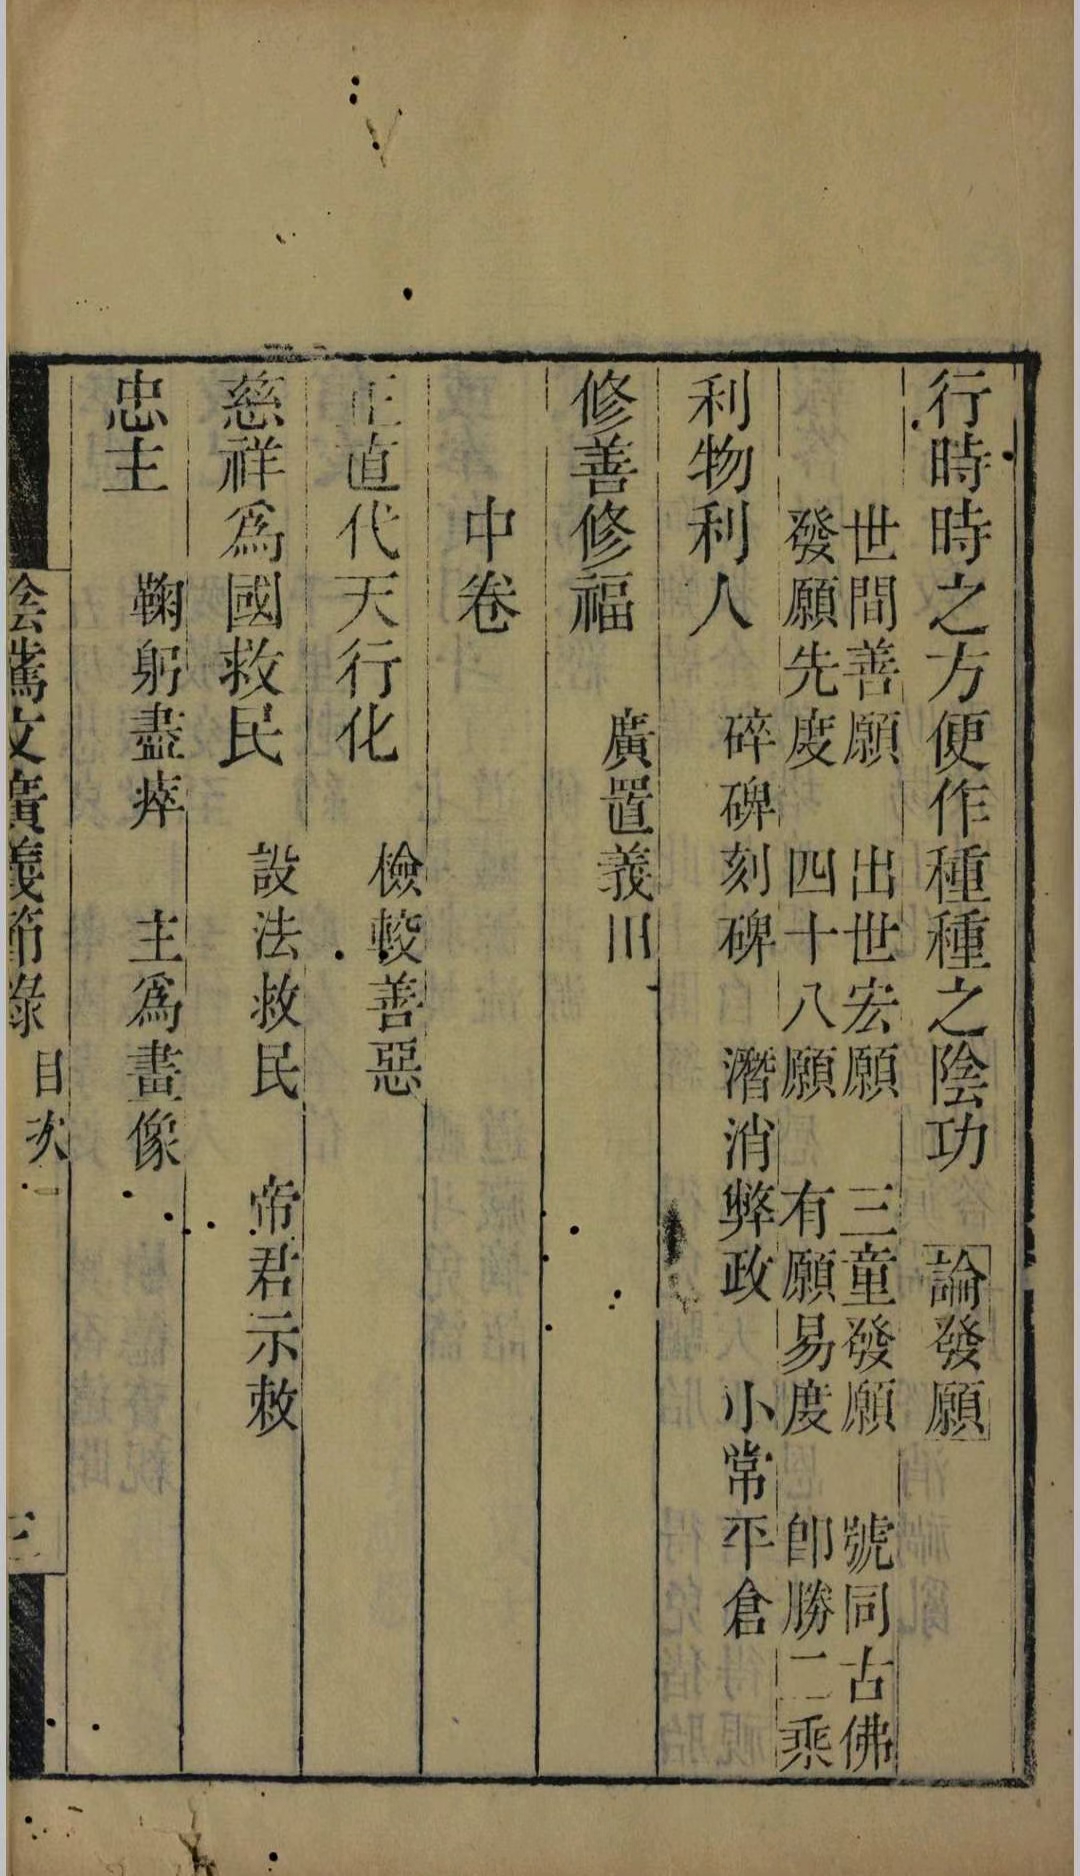 行時時之方便作種種之陰功　論發願
世間善願　出世宏願　三童發願　號同古佛
發願先度　四十八願　有願易度　卽勝二乘
利物利人
碎碑刻碑　潛消弊政　小常平倉
修善修福
廣置義川
中卷
正直代天行化
檢較善惡
慈祥爲國救民
設法救民　帝君示敕
忠主
鞠躬盡瘁　主爲畫像
陰騭文廣義節錄　目次